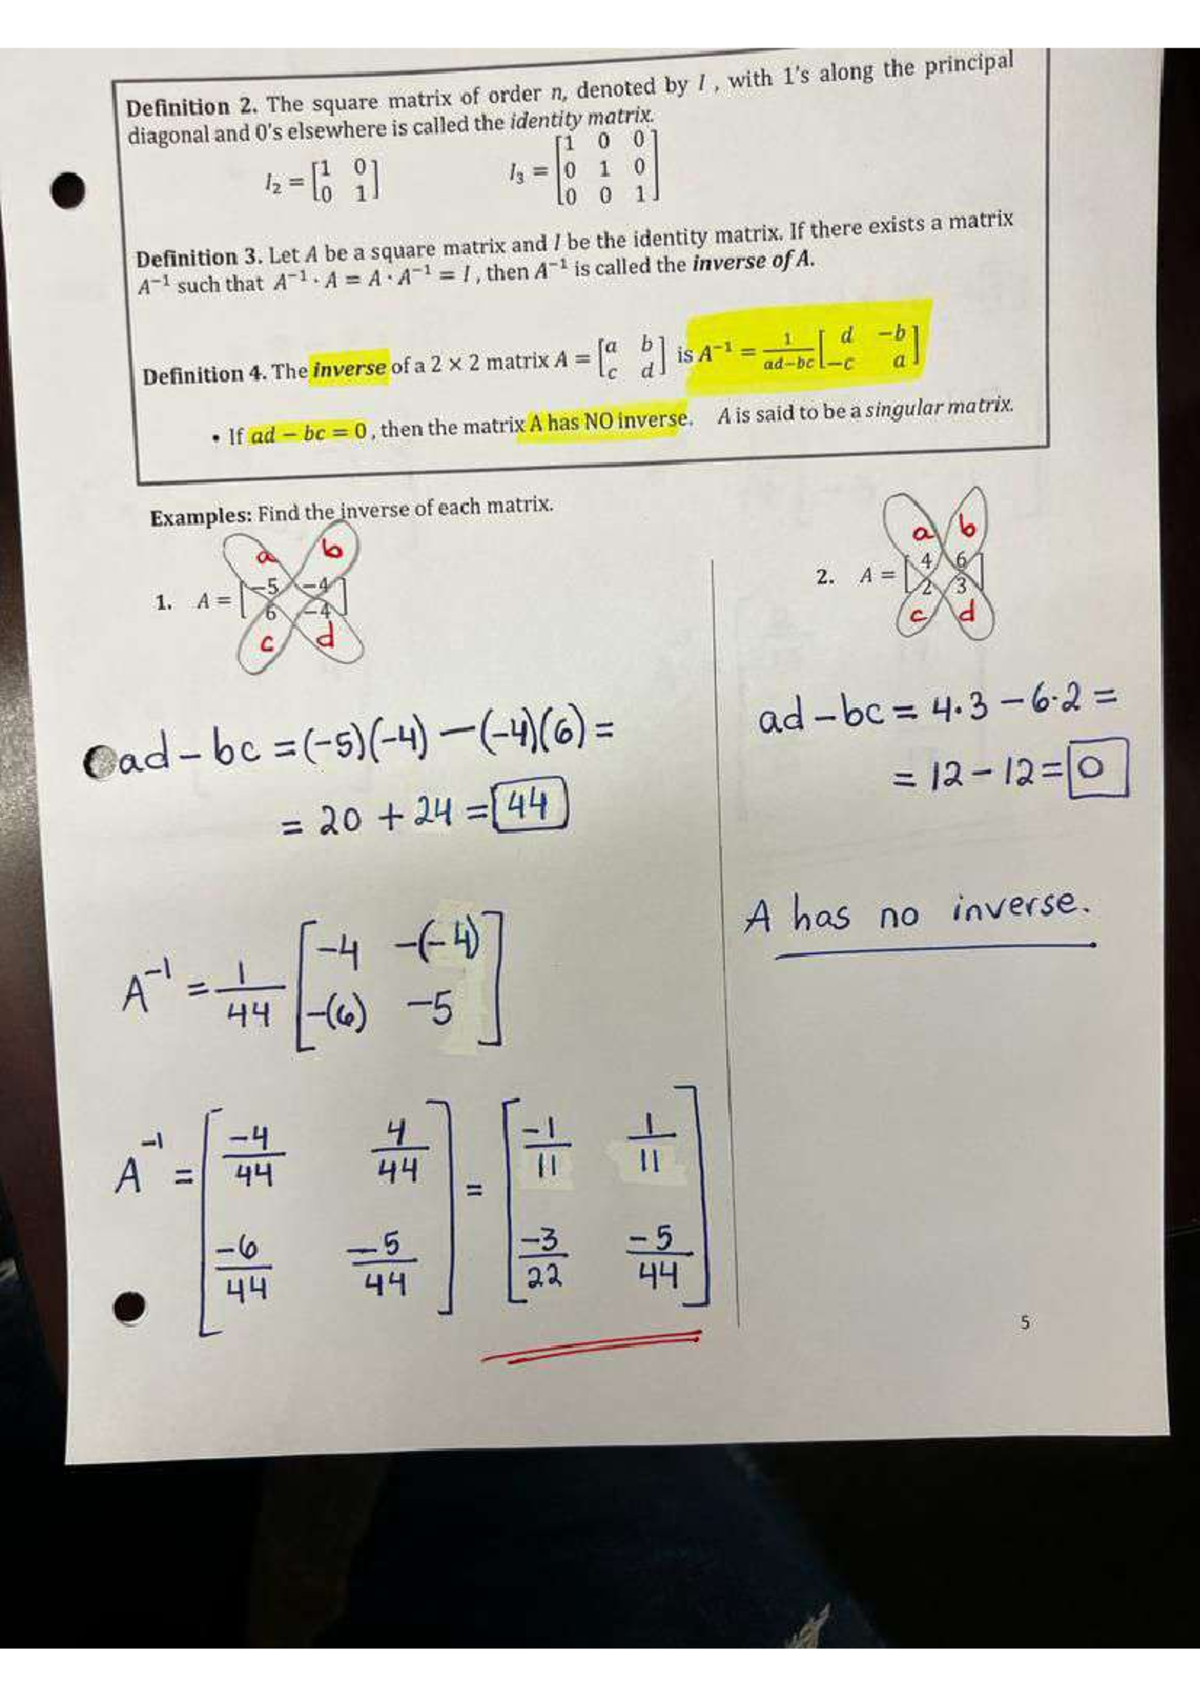 Definition 2. The square matrix of order n, denoted by I , with 1's along the principal
diagonal and 0's elsewhere is called the identity matrix.
I₂ = [1 0
0 1]
I₃ = [1 0 0
0 1 0
0 0 1]
Definition 3. Let A be a square matrix and I be the identity matrix. If there exists a matrix
A⁻¹ such that A⁻¹ · A = A · A⁻¹ = I , then A⁻¹ is called the inverse of A.
Definition 4. The inverse of a 2 × 2 matrix A = [a b; c d] is A⁻¹ = 1/(ad−bc) [d −b; −c a]
• If ad − bc = 0 , then the matrix A has NO inverse. A is said to be a singular matrix.
Examples: Find the inverse of each matrix.
a b
1. A = [−5 −4
6 −4]
c d
ad − bc = (−5)(−4) − (−4)(6) =
= 20 + 24 = 44
A⁻¹ = 1/44 [−4 −(−4)
−(6) −5]
A⁻¹ = [−4/44 4/44
−6/44 −5/44]
= [−1/11 1/11
−3/22 −5/44]
a b
2. A = [4 6
2 3]
c d
ad − bc = 4·3 − 6·2 =
= 12 − 12 = 0
A has no inverse.
5